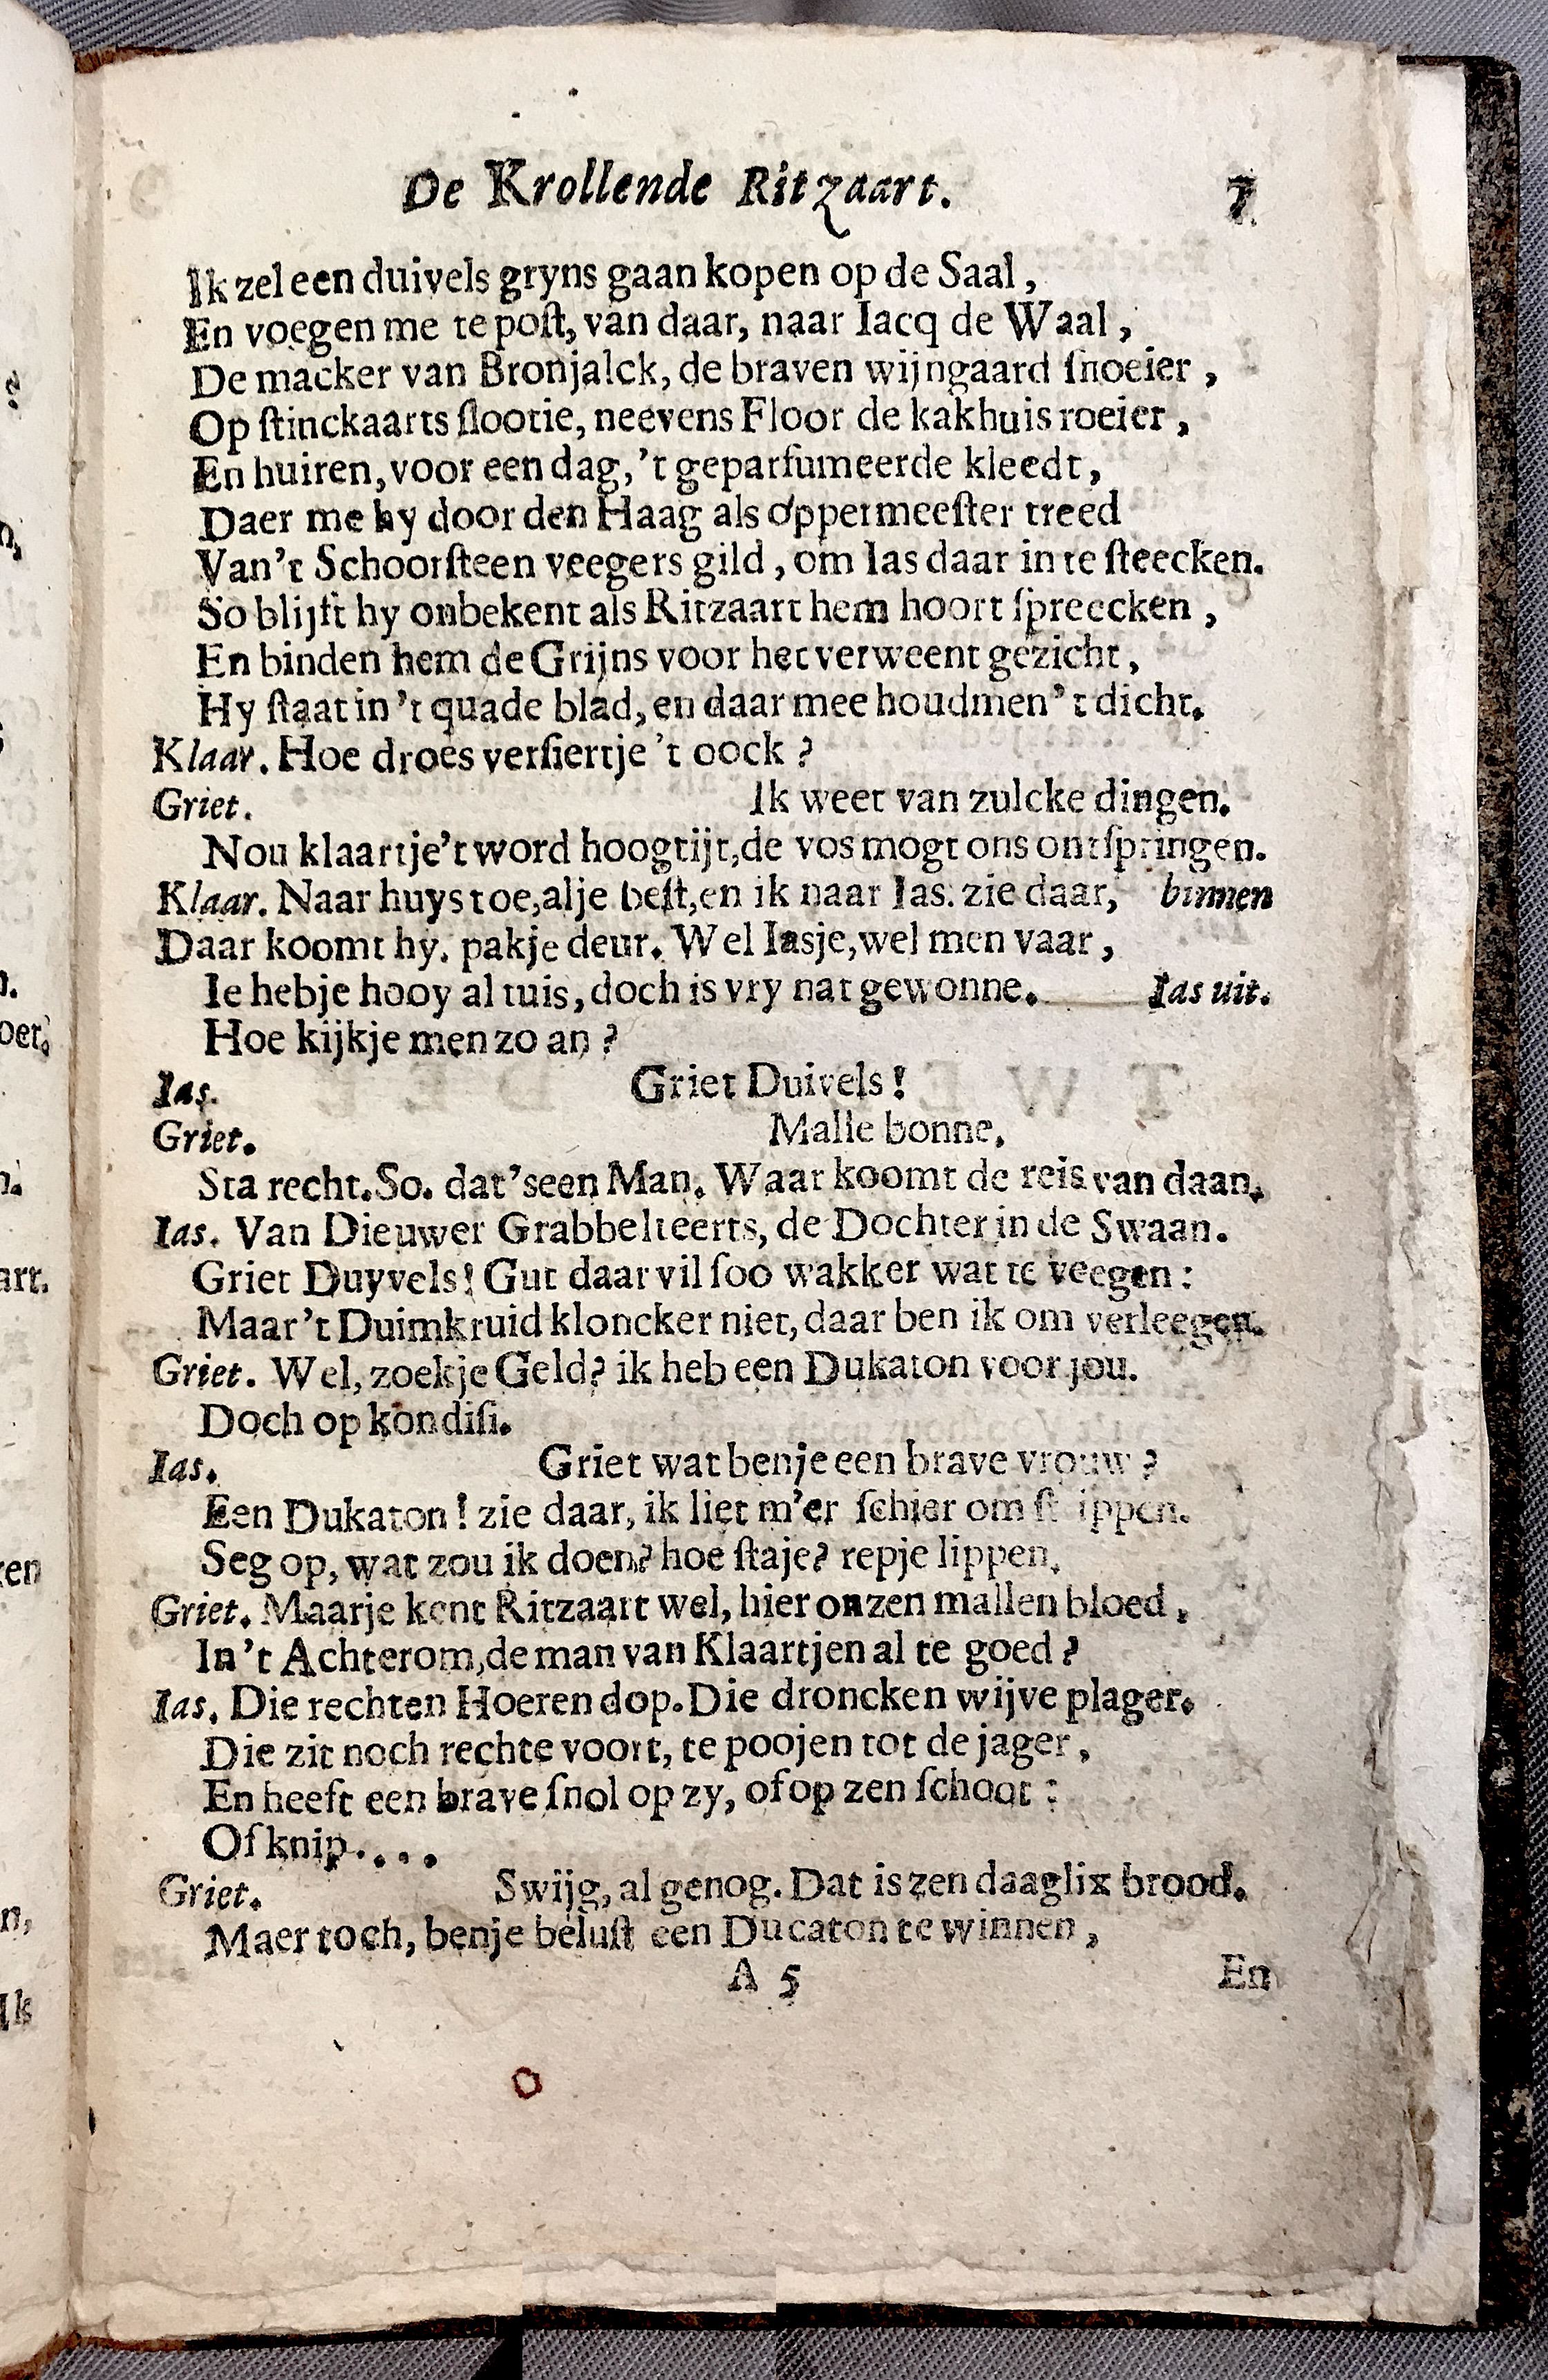 De Krollende Ritzaart. 7
Ik zel een duivels gryns gaan kopen op de Saal,
En voegen me te poſt, van daar, naar Iacq de Waal,
De macker van Bronjalck, de braven wijngaard ſnoeier,
Op ſtinckaarts ſlootie, neevens Floor de kakhuis roeier,
En huiren, voor een dag, 't geparfumeerde kleedt,
Daer me hy door den Haag als oppermeeſter treed
Van't Schoorſteen veegers gild, om Ias daar in te ſteecken.
So blijft hy onbekent als Ritzaart hem hoort ſpreecken,
En binden hem de Grijns voor het verweent gezicht,
Hy ſtaat in 't quade blad, en daar mee houdmen't dicht.
Klaar. Hoe droes verſiertje 't oock?
Griet. Ik weet van zulcke dingen.
Nou klaartje't word hoogtijt, de vos mogt ons ontſpringen.
Klaar. Naar huys toe, alje beſt, en ik naar Ias. zie daar, binnen
Daar koomt hy. pakje deur. Wel Iasje, wel men vaar,
Ie hebje hooy al tuis, doch is vry nat gewonne. Ias uit.
Hoe kijkje men zo an?
Ias. Griet Duivels!
Griet. Malle bonne.
Sta recht. So. dat'seen Man. Waar koomt de reis van daan.
Ias. Van Dieuwer Grabbelteerts, de Dochter in de Swaan.
Griet Duyvels! Gut daar vil ſoo wakker wat te veegen:
Maar't Duimkruid kloncker niet, daar ben ik om verleegen.
Griet. Wel, zoekje Geld? ik heb een Dukaton voor jou.
Doch op kondiſi.
Ias. Griet wat benje een brave vrouw?
Een Dukaton! zie daar, ik liet m'er ſchier om
Seg op, wat zou ik doen? hoe ſtaje? repje lippen.
Griet. Maarje kent Ritzaart wel, hier onzen mallen bloed,
In't Achterom, de man van Klaartjen al te goed?
Ias. Die rechten Hoeren dop. Die droncken wijve plager.
Die zit noch rechte voort, te poojen tot de jager,
En heeft een brave ſnol op zy, of op zen ſchoot:
Of knip....
Griet. Swijg, al genog. Dat is zen daaglix brood.
Maer toch, benje beluſt een Ducaton te winnen,
A 5 En